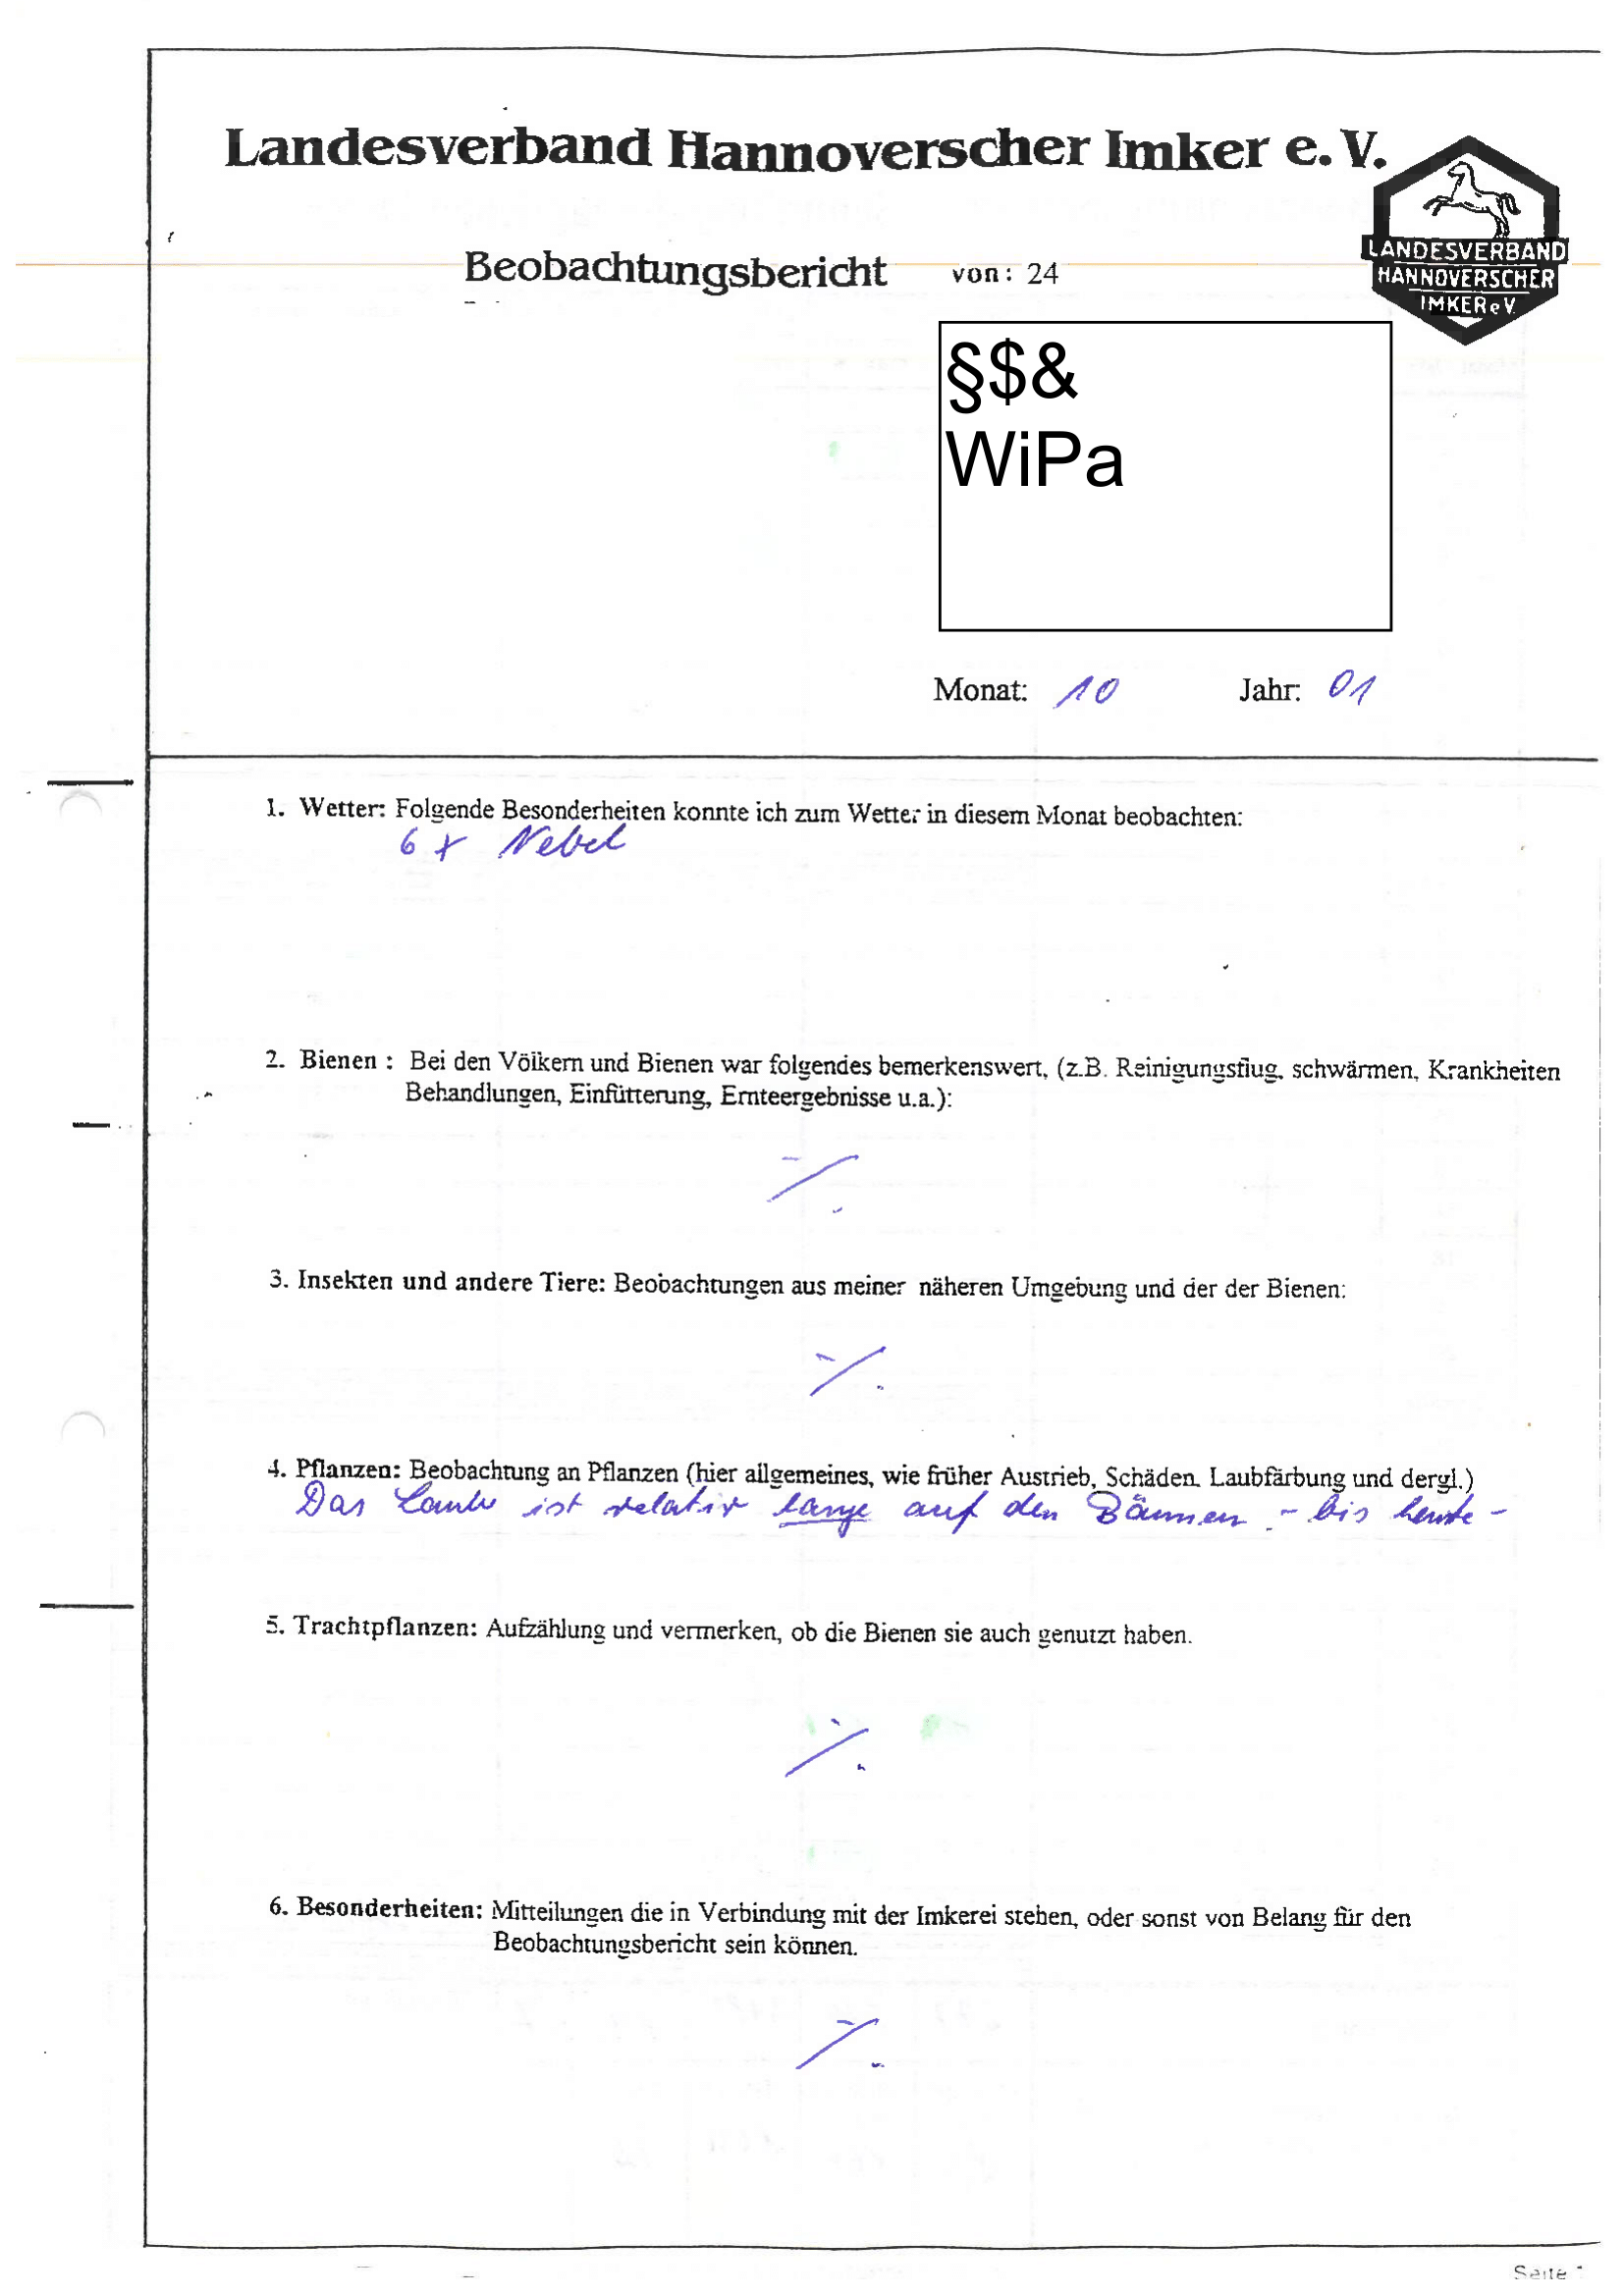 Landesverband Hannoverscher Imker e. V.
LANDESVERBAND
HANNOVERSCHER
IMKER e V.
Beobachtungsbericht von: 24
§$&
WiPa
Monat: 10 Jahr: 01
1. Wetter: Folgende Besonderheiten konnte ich zum Wetter in diesem Monat beobachten:
6 x Nebel
2. Bienen : Bei den Völkern und Bienen war folgendes bemerkenswert, (z.B. Reinigungsflug, schwärmen, Krankheiten
Behandlungen, Einfütterung, Ernteergebnisse u.a.):
./.
3. Insekten und andere Tiere: Beobachtungen aus meiner näheren Umgebung und der der Bienen:
./.
4. Pflanzen: Beobachtung an Pflanzen (hier allgemeines, wie früher Austrieb, Schäden. Laubfärbung und dergl.)
Das Laub ist relativ lange auf den Bäumen - bis heute -
5. Trachtpflanzen: Aufzählung und vermerken, ob die Bienen sie auch genutzt haben.
./.
6. Besonderheiten: Mitteilungen die in Verbindung mit der Imkerei stehen, oder sonst von Belang für den
Beobachtungsbericht sein können.
./.
Seite 1